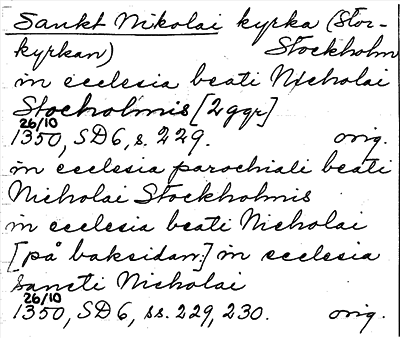 Sankt Nikolai kyrka (Stor-
kyrkan) Stockholm
in ecclesia beati Nicholai
Stocholmis [2 ggr]
26/10
1350, SD 6, s. 229. orig.
in ecclesia parochiali beati
Nicholai Stockholmis
in ecclesia beati Nicholai
[på baksidan:] in ecclesia
sancti Nicholai
26/10
1350, SD 6, ss. 229, 230. orig.